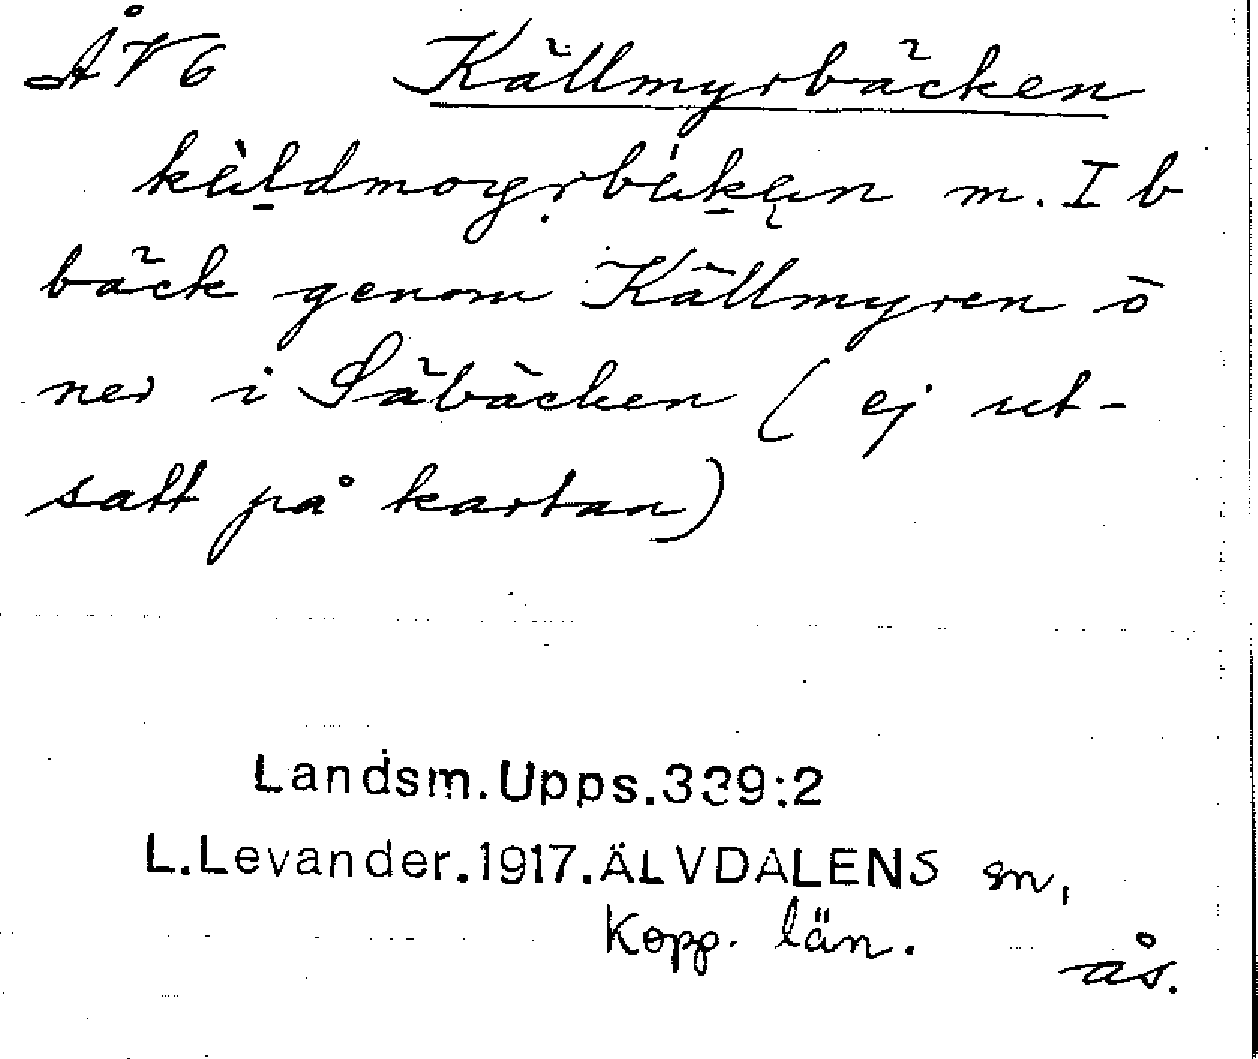 ÅV6 Källmyrbäcken
kàldmoyrbäkan m. I b
bäck genom Källmyren ö
ner i Säbäcken (ej ut-
satt på kartan)
Landsm.Upps.339:2
L.Levander.1917.ÄLVDALENS sn,
Kopp. län.
ås.